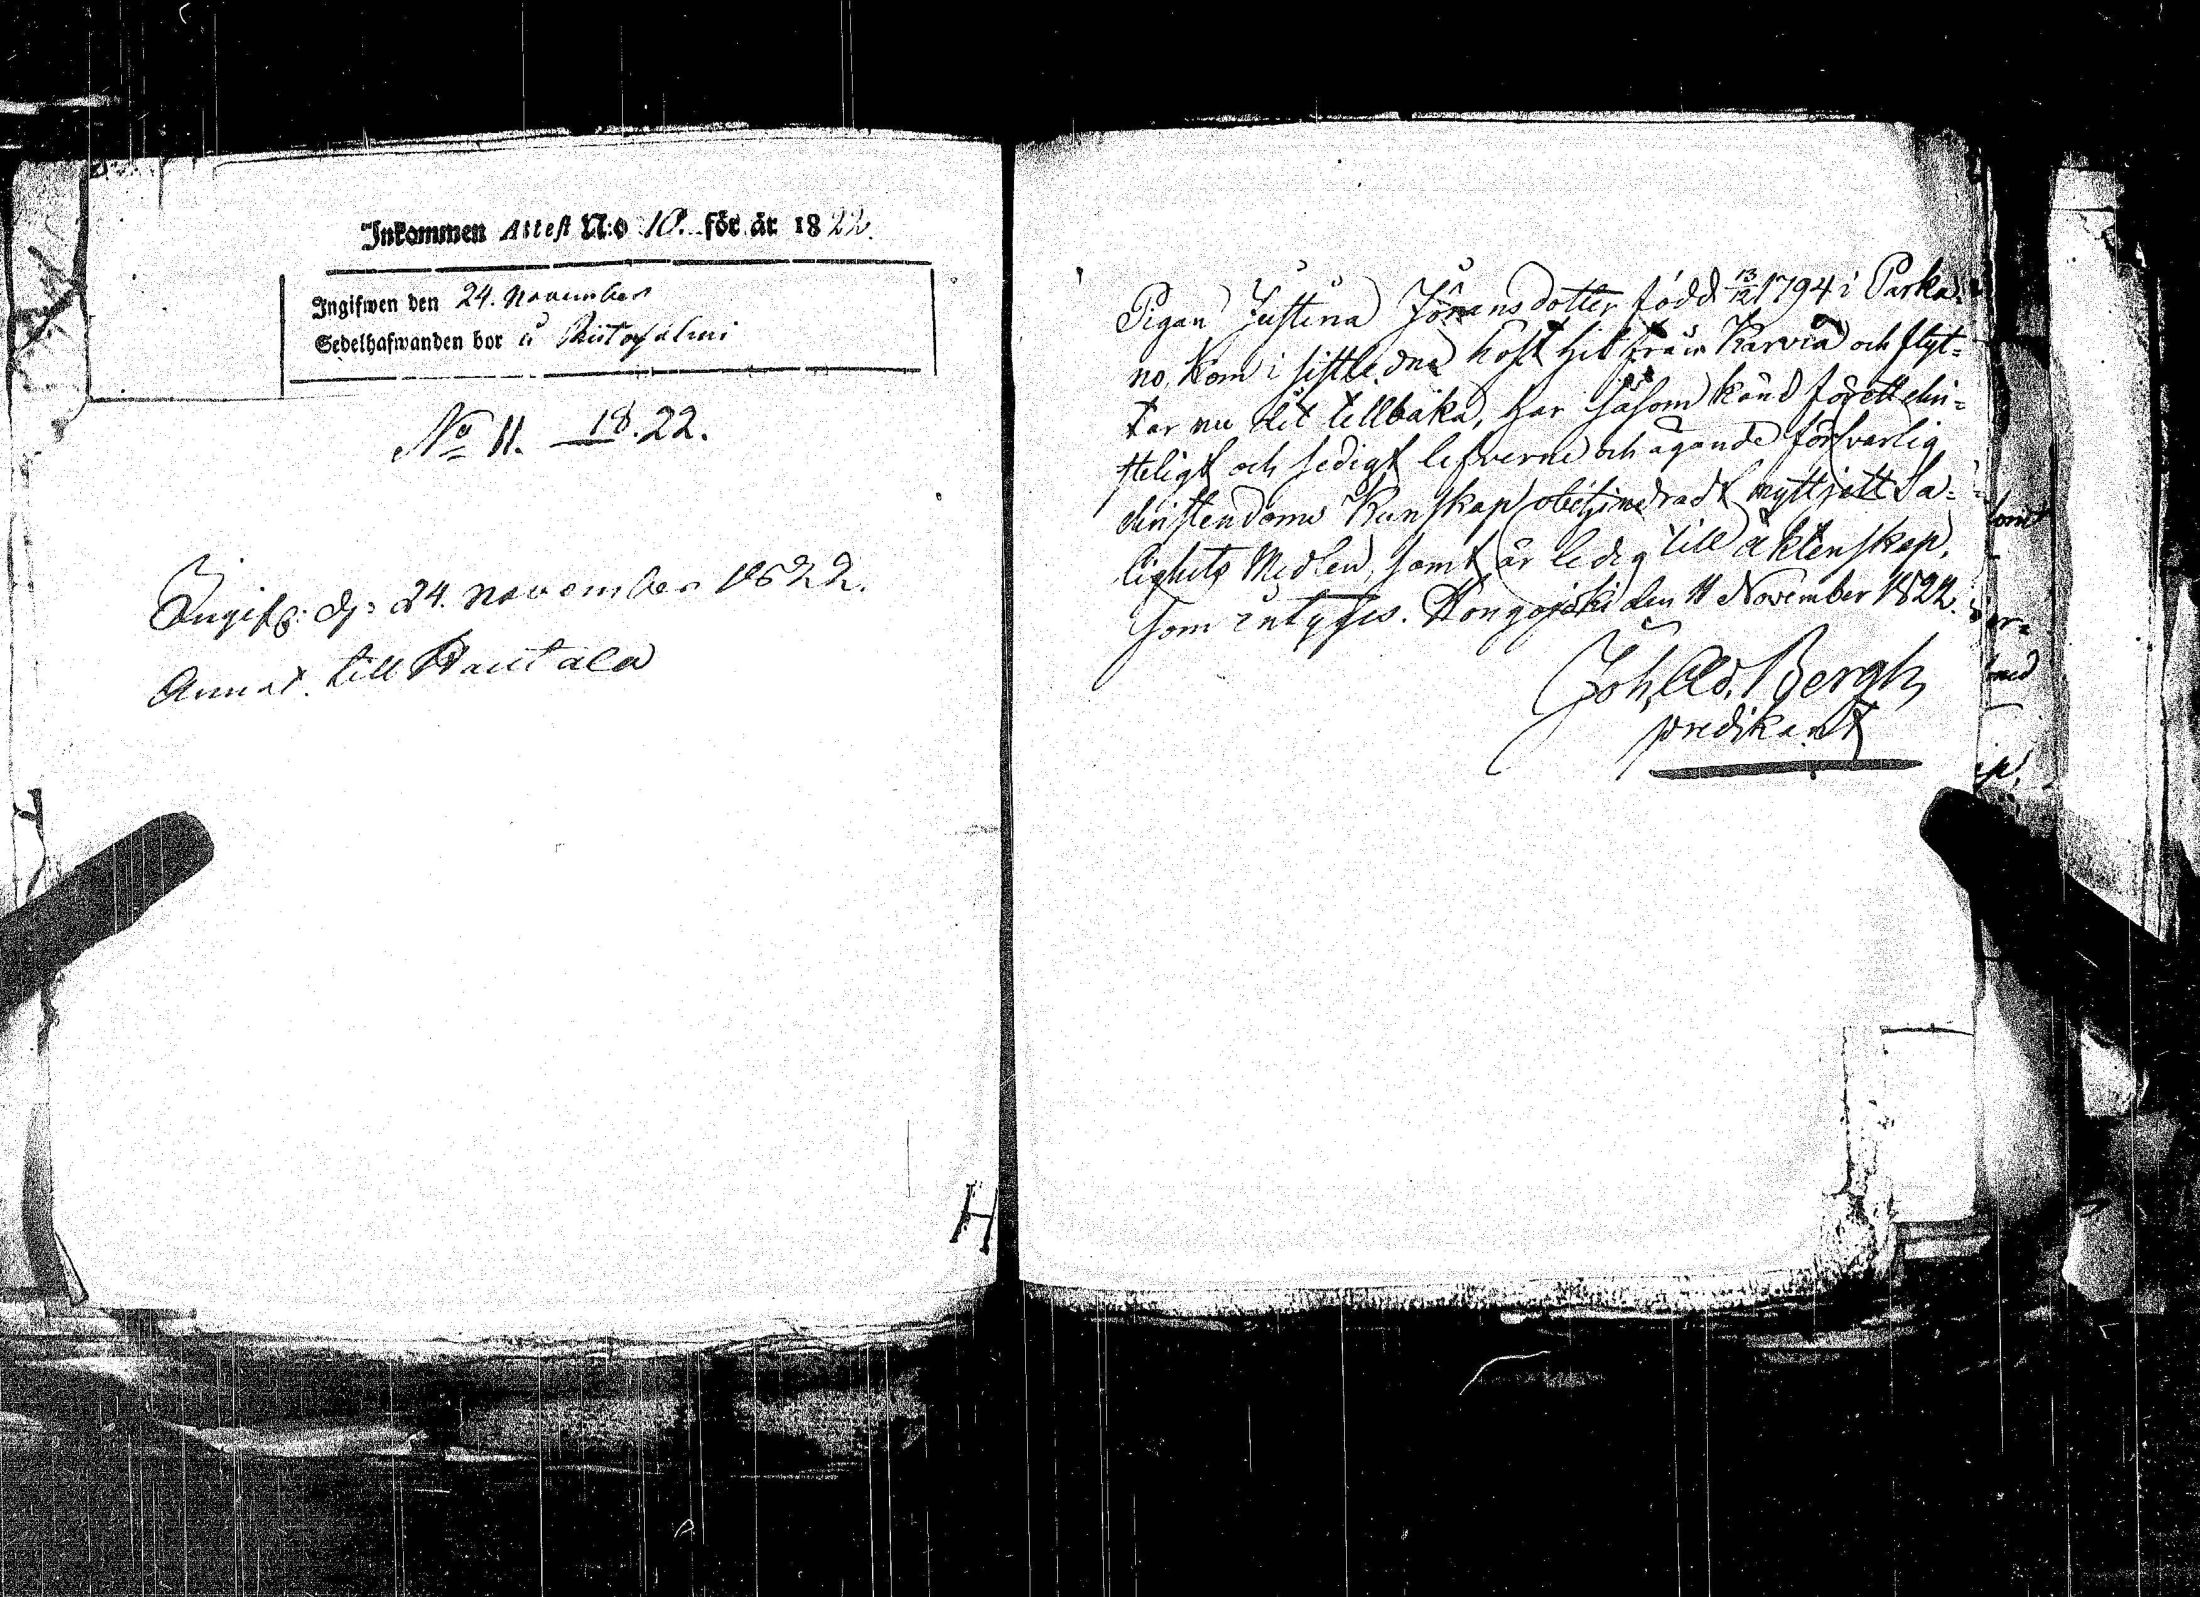 Inkommen Attest N:o 10. för år 1822.
Ingifwen den 24. November
Sedelhafwanden bor å
No 11. 18.22.
Ingif: d: 24. November 1822.
Annot. till Hautala
H
Pigan Justina Johansdotter född 13/12 1794 i Parka-
no, kom i sistledne höst hit från Karvia och flyt=
tar nu dit tillbaka, har såsom känd för ett chri=
steligt och sedigt lefverne och ägande försvarlig
christendoms Kunskap obehindradt nyttjatt Sa=
lighets Medlen, samt är ledig till äktenskap,
som intygas. Hongojoki den 11 November 1822.
Joh. Ad. Bergh,
predikant
samt
med